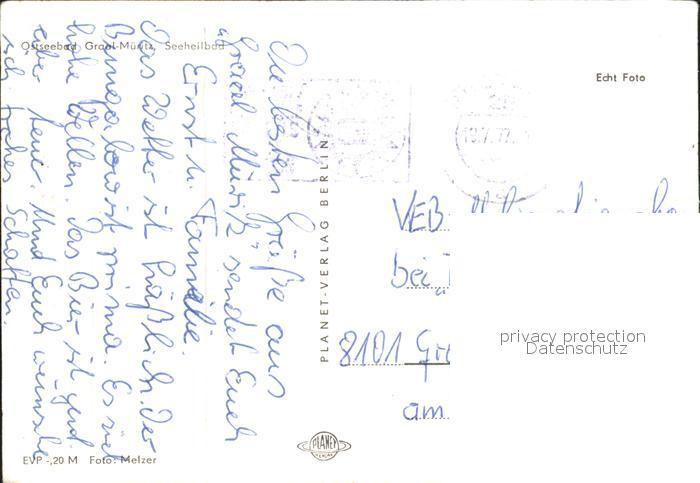 Ostseebad Graal-Müritz, Seeheilbad
Echt Foto
Die besten Grüße aus
Graal Müritz sendet Euch
Ernst u. Familie.
Das Wetter ist häßlich. Der
Bungalow ist prima. Es sind
hohe Wellen. Das Bier ist gut
aber teuer. Und Euch wünsche
ich frohes Schaffen.
PLANET-VERLAG BERLIN
VEB
bei
8101
am
privacy protection
Datenschutz
PLANET
VERLAG
EVP -,20 M Foto: Melzer